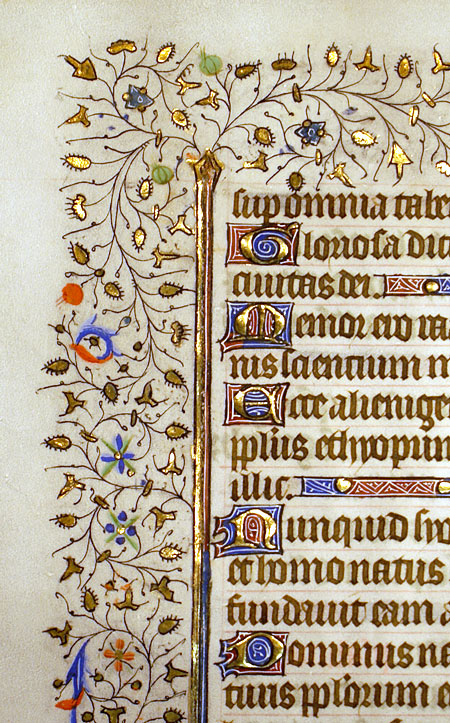 sup omnia tabe
Gloriosa dict
civitas dei.
Memor ero ra
nis scientium m
Ecce alienige
pplus ethyopum
illic.
Nunquid syo
et homo natus
fundavit eam a
Dominus na
turis pplorum e